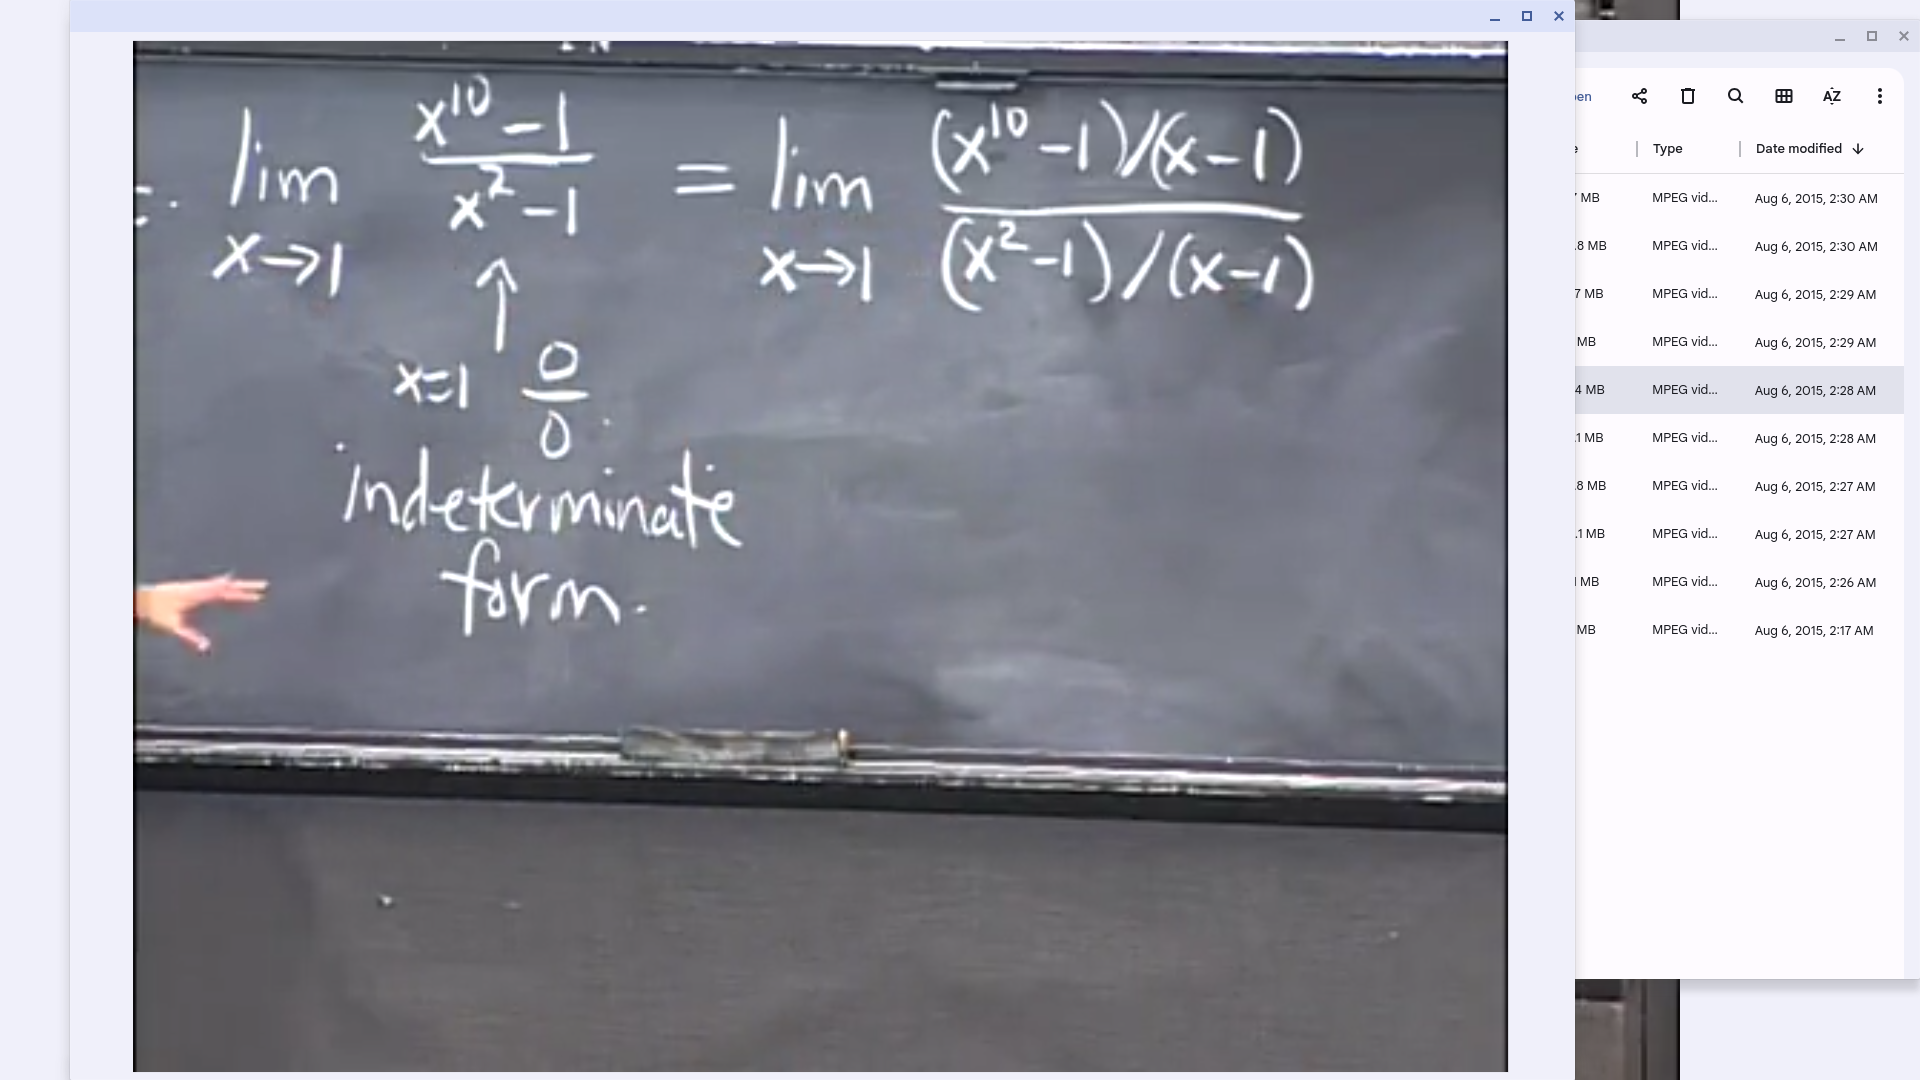 lim x→1 (x^10 - 1)/(x^2 - 1) = lim x→1 ((x^10 - 1)/(x - 1))/((x^2 - 1)/(x - 1))
↑
x=1 0/0
indeterminate
form.
Type Date modified ↓
7 MB MPEG vid... Aug 6, 2015, 2:30 AM
.8 MB MPEG vid... Aug 6, 2015, 2:30 AM
7 MB MPEG vid... Aug 6, 2015, 2:29 AM
MB MPEG vid... Aug 6, 2015, 2:29 AM
4 MB MPEG vid... Aug 6, 2015, 2:28 AM
.1 MB MPEG vid... Aug 6, 2015, 2:28 AM
.8 MB MPEG vid... Aug 6, 2015, 2:27 AM
.1 MB MPEG vid... Aug 6, 2015, 2:27 AM
MB MPEG vid... Aug 6, 2015, 2:26 AM
MB MPEG vid... Aug 6, 2015, 2:17 AM